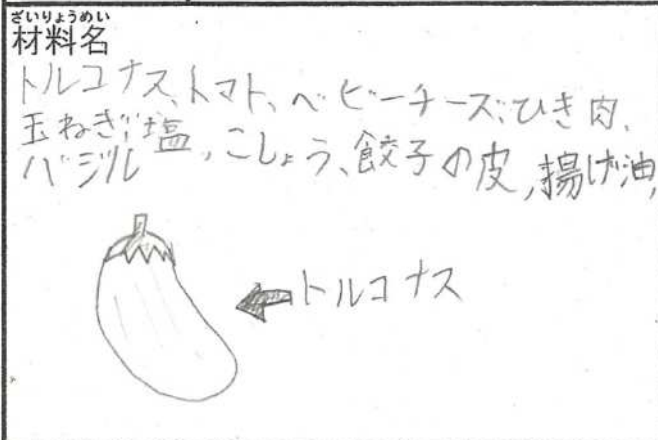 ざいりょうめい
材料名
トルコナス、トマト、ベビーチーズ、ひき肉、
玉ねぎ、塩、こしょう、餃子の皮、揚げ油、
バジル
トルコナス